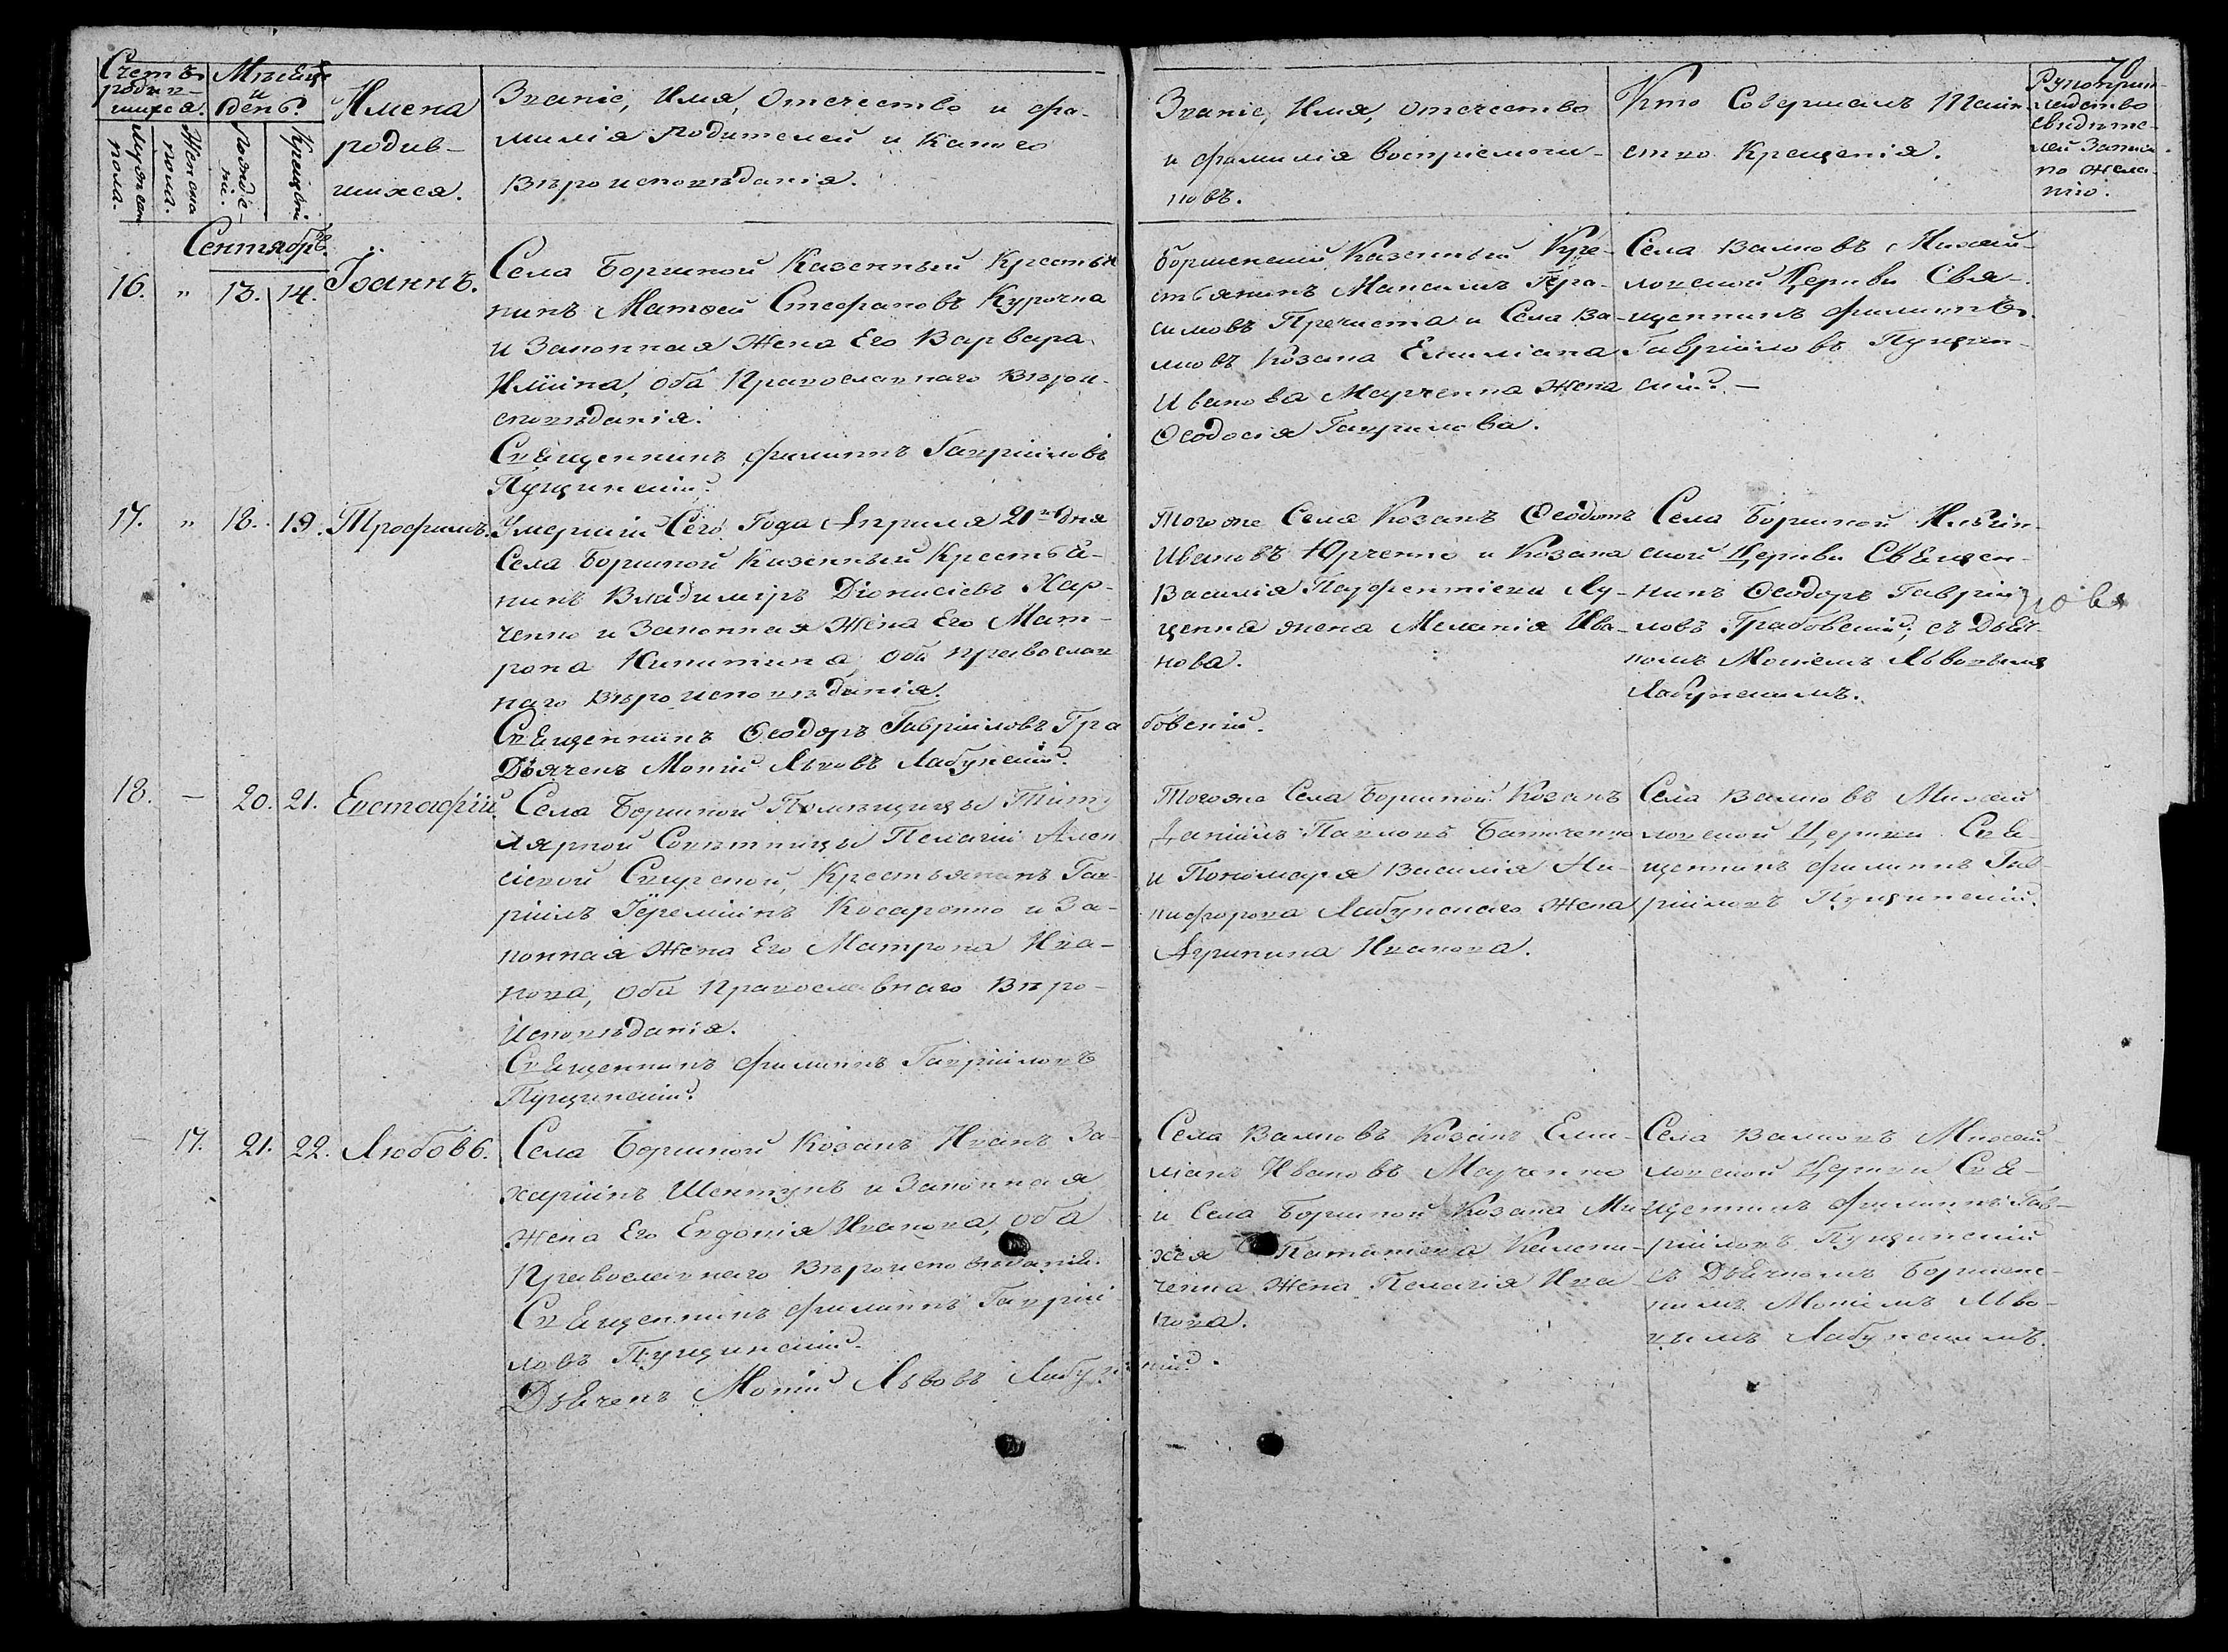 70
Счетъ
родив-
шихся.
Мѣсяцъ
и
день.
Мужеска
пола.
Женска
пола.
Рожде-
нія.
Крещенія
Имена
родив-
шихся.
Званіе, Имя, Отечество и фа-
милія Родителей и Какого
Вѣроисповѣданія.
Званіе, Имя, Отечество
и фамилія воспріемни-
ковъ.
Кто Совершалъ Таин-
ство Крещенія.
Рукоприк-
ладство
свидѣте-
лей записи
по жела-
нію.
Сентябрь.
16. " 13. 14. Іоаннъ.
Села Боршной Казенный Крестья
нинъ Матѳей Стефановъ Курочка
и Законная Жена Его Варвара
Иліина, оба Православнаго Вѣрои-
споѣданія.
Священникъ Филиппъ Гавріиловъ
Пущинскій.
Боршенскій Казенный Кре-
стьянинъ Максимъ Гера-
симовъ Пречиста и Села Ва-
лковъ Козака Емиліана
Иванова Марченка Жена
Ѳеодосія Гаврилова.
Села Валковъ Михай-
ловской Церкви Свя-
щенникъ Филиппъ
Гавріиловъ Пущин-
скій. —
17. " 18. 19. Трофимъ.
Умершій Сего Года Априля 21го дня
Села Боршной Казенный Крестья-
нинъ Владиміръ Діонисіевъ Хар-
ченко и Законная Жена Его Мат-
рона Никитина, оба Православ
наго Вѣроисповѣданія.
Священникъ Ѳеодоръ Гавріиловъ Гра
бовскій.
Дьячекъ Мокій Львовъ Лабунскій.
Тогоже Села Козакъ Ѳеодотъ
Ивановъ Юрченко и Козака
Василія Парфентіева Лу-
ценка жена Меланія Ива-
нова.
Села Боршной
ской Церкви Священ-
никъ Ѳеодоръ Гаврій
ловъ Грабовскій, съ Дьяч-
комъ Мокіемъ Львовымъ
Лабунскимъ.
18. — 20. 21. Евстафій.
Села Боршной Помѣщицы Титу
лярной Совѣтницы Пелагіи Алек
сіевой Свирской, Крестьянинъ Гав-
ріилъ Іереміинъ Косаренко и За-
конная Жена Его Матрона Ива-
нова, оба Православнаго Вѣро-
исповѣданія.
Священникъ Филиппъ Гавріиловъ
Пущинскій.
Тогоже Села Боршной Козакъ
Даніилъ Павловъ Батченко
и Пономаря Василія Ни-
кифорова Лабунскаго Жена
Агрипина Иванова.
Села Валковъ Михай
ловской Церкви Свя-
щенникъ Филиппъ Гав-
ріиловъ Пущинскій.
— 17. 21. 22. Любовь.
Села Боршной Козакъ Иванъ За-
харіинъ Шептунъ и Законная
Жена Его Евдокія Иванова, оба
Православнаго Вѣроисповѣданія.
Священникъ Филиппъ Гавріи-
ловъ Пущинскій.
Дьячекъ Мокій Львовъ Лабун
скій.
Села Валковъ Козакъ Еми-
ліанъ Ивановъ Марченко
и Села Боршной Козака Ми-
хея Каленi-
ченка Жена Пелагія Ива
нова.
Села Валковъ Михай-
ловской Церкви Свя-
щенникъ Филиппъ Гав-
ріиловъ Пущинскій
съ Дьячкомъ Боршенс-
кимъ Мокіемъ Льво-
вымъ Лабунскимъ.